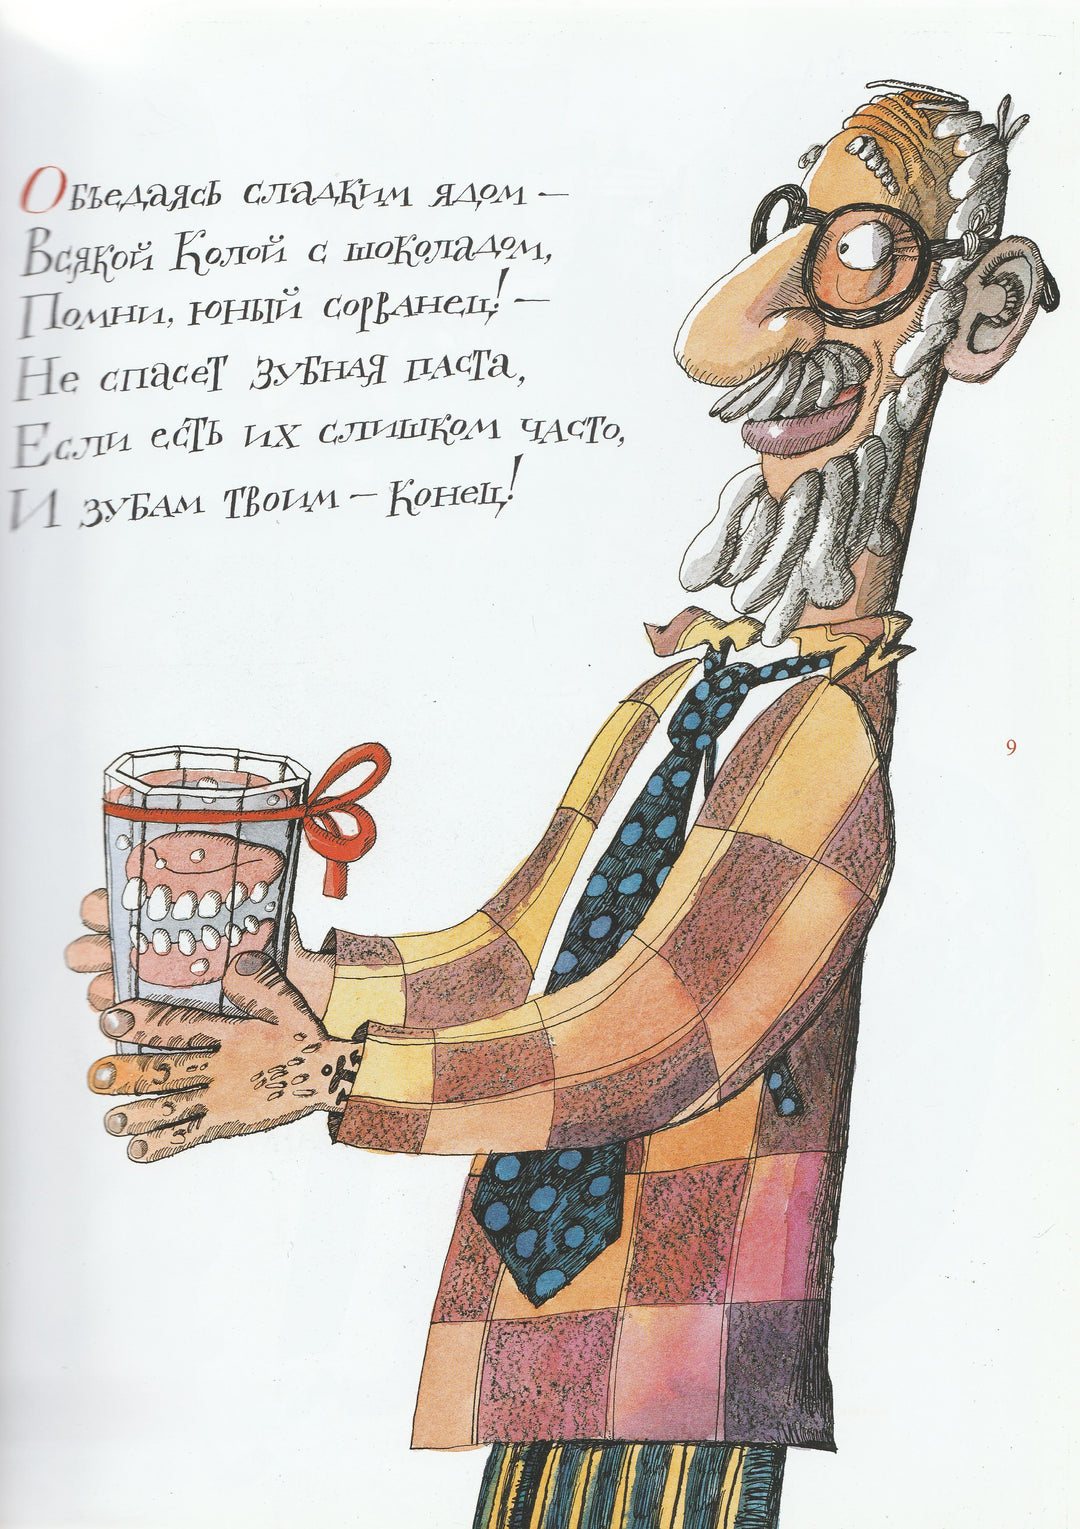 Объедаясь сладким ядом –
Всякой Колой с шоколадом,
Помни, юный сорванец! –
Не спасет зубная паста,
Если есть их слишком часто,
И зубам твоим – конец!
9